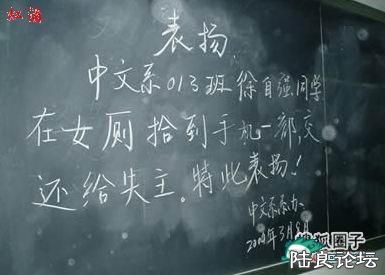 表扬
中文系013班徐自强同学
在女厕拾到手机一部,交
还给失主。特此表扬!
中文系系办
搜狐圈子
陆良论坛